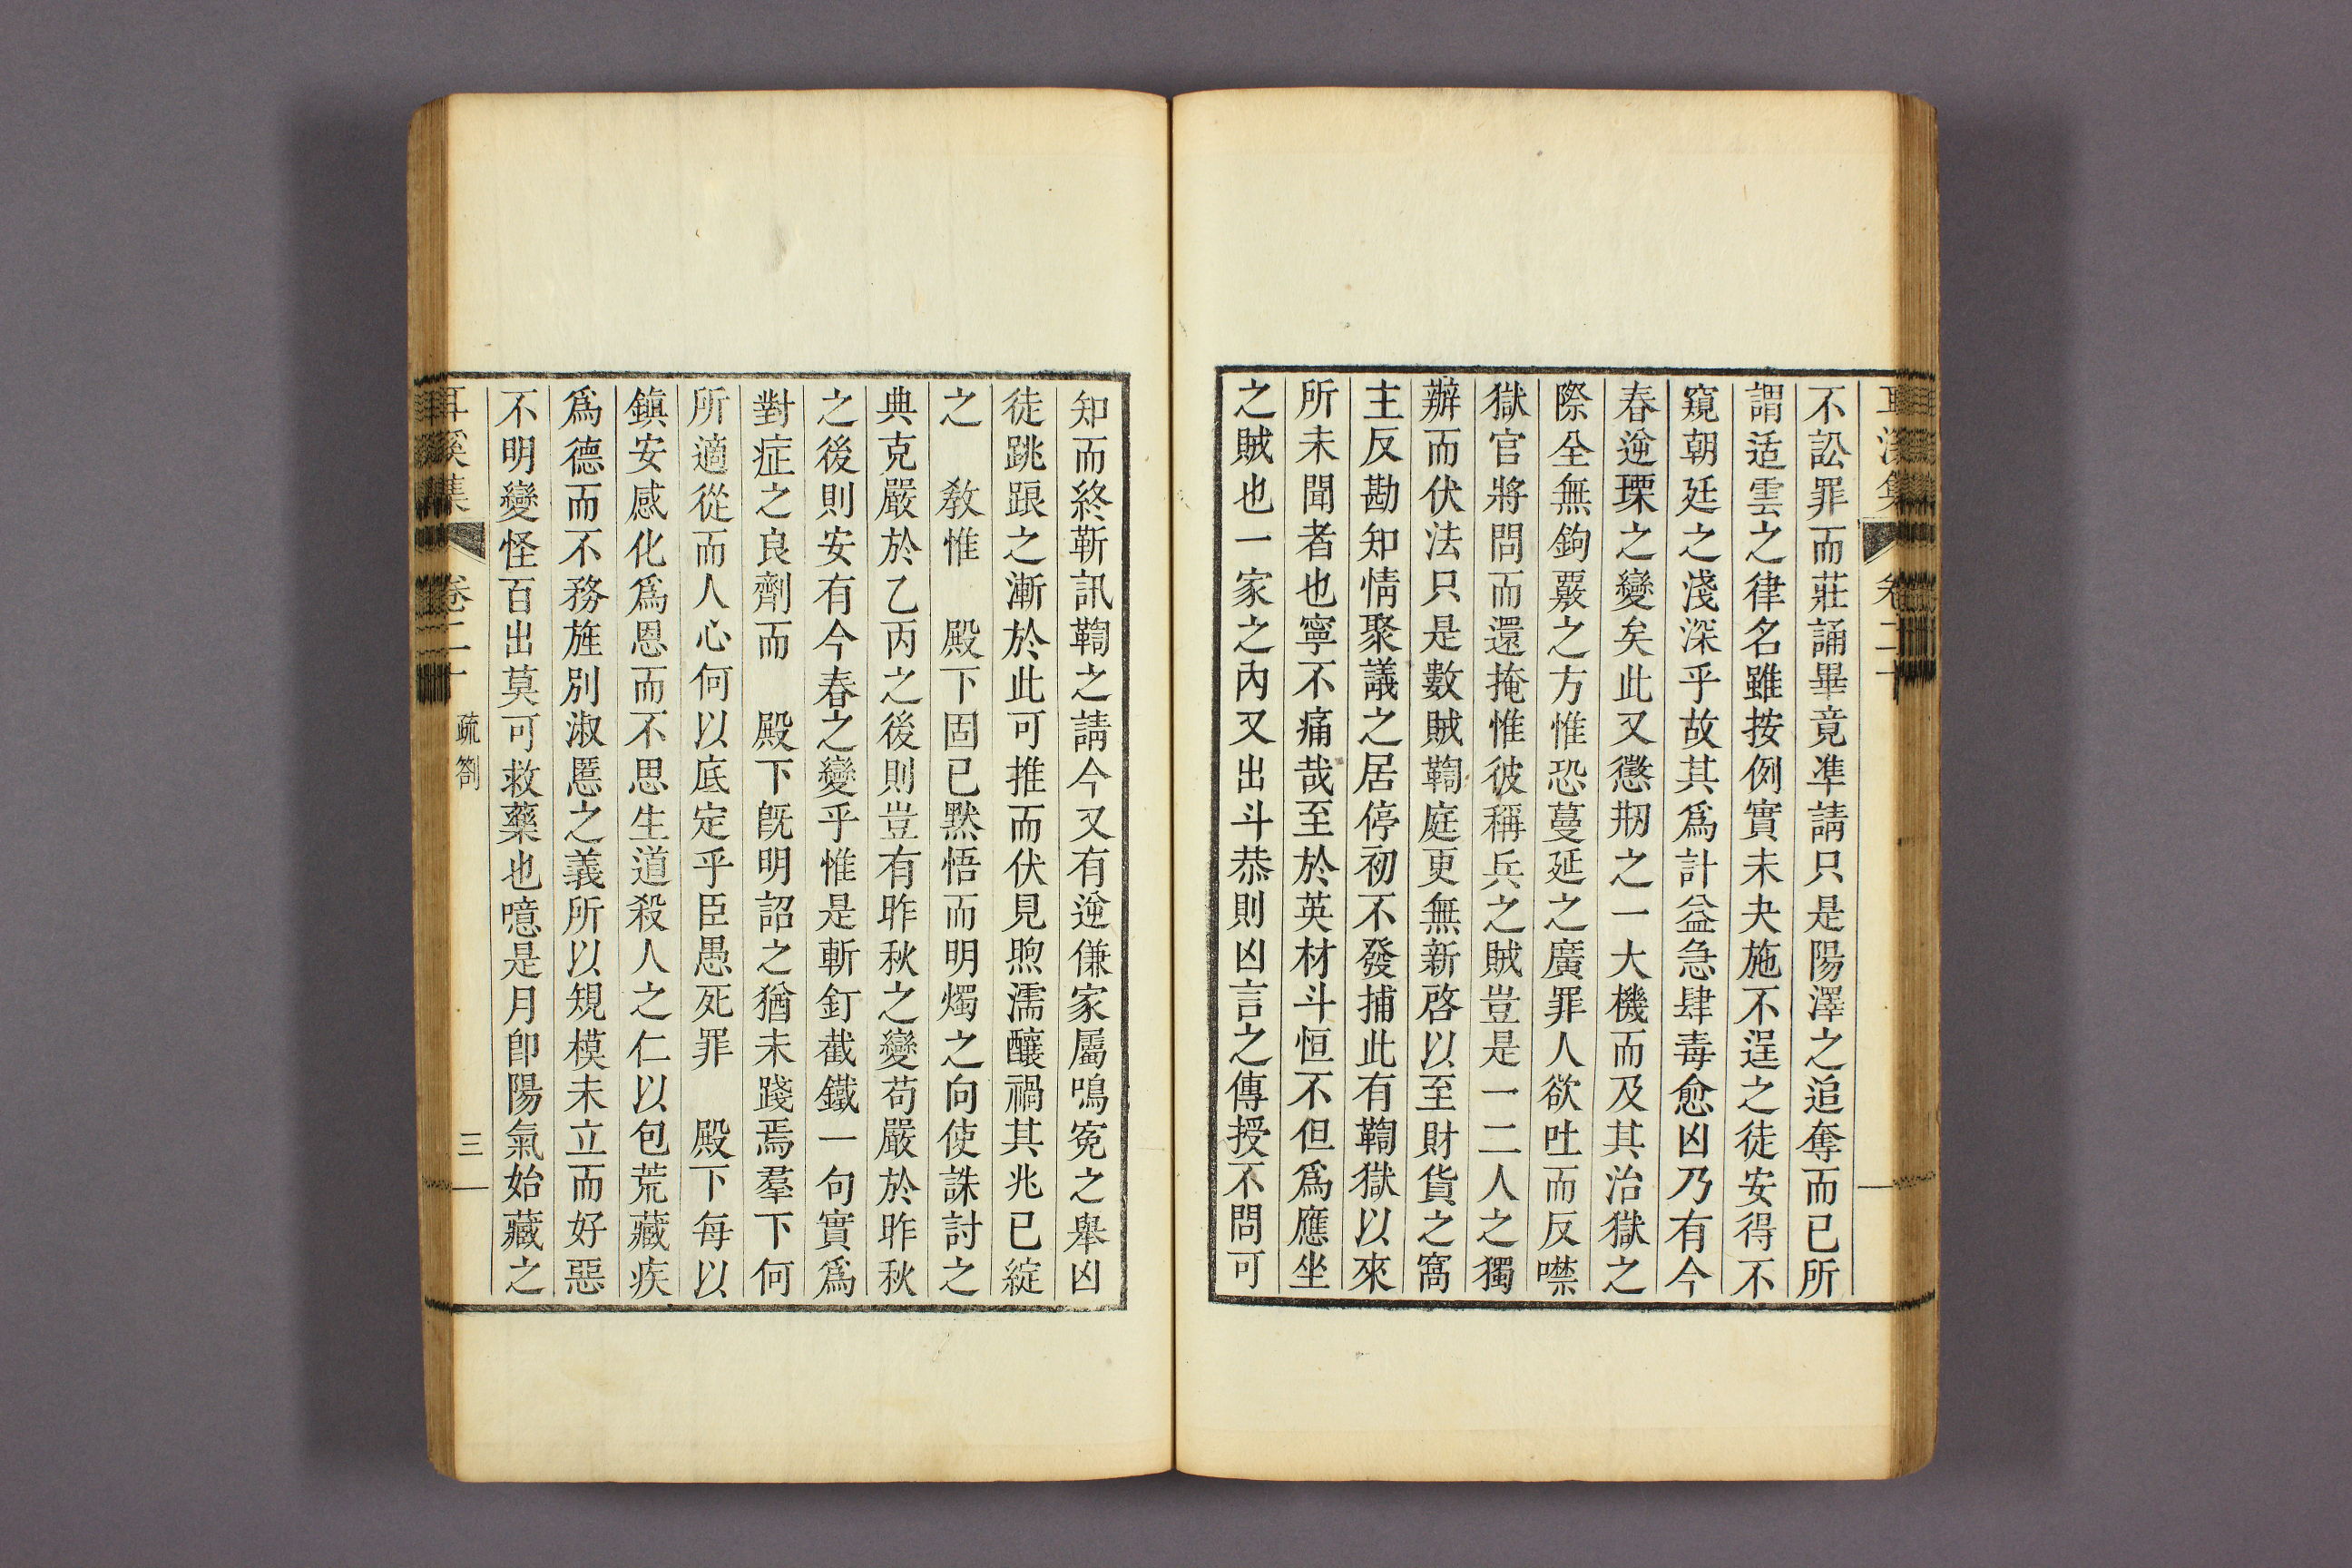 耳溪集 卷二十
不訟罪而莊誦畢竟準請只是陽澤之追奪而已所
謂适雲之律名雖按例實未夬施不逞之徒安得不
窺朝廷之淺深乎故其爲計益急肆毒愈凶乃有今
春逆㻩之變矣此又懲刱之一大機而及其治獄之
際全無鉤覈之方惟恐蔓延之廣罪人欲吐而反噤
獄官將問而還掩惟彼稱兵之賊豈是一二人之獨
辦而伏法只是數賊鞫庭更無新啓以至財貨之窩
主反勘知情聚議之居停初不發捕此有鞫獄以來
所未聞者也寧不痛哉至於英材斗恒不但爲應坐
之賊也一家之內又出斗恭則凶言之傳授不問可
知而終靳訊鞫之請今又有逆傔家屬鳴寃之舉凶
徒跳踉之漸於此可推而伏見煦濡釀禍其兆已綻
之 敎惟 殿下固已黙悟而明燭之向使誅討之
典克嚴於乙丙之後則豈有昨秋之變苟嚴於昨秋
之後則安有今春之變乎惟是斬釘截鐵一句實爲
對症之良劑而 殿下旣明詔之猶未踐焉羣下何
所適從而人心何以底定乎臣愚死罪 殿下每以
鎭安感化爲恩而不思生道殺人之仁以包荒藏疾
爲德而不務旌別淑慝之義所以規模未立而好惡
不明變怪百出莫可救藥也噫是月卽陽氣始藏之
耳溪集 卷二十 疏箚 三